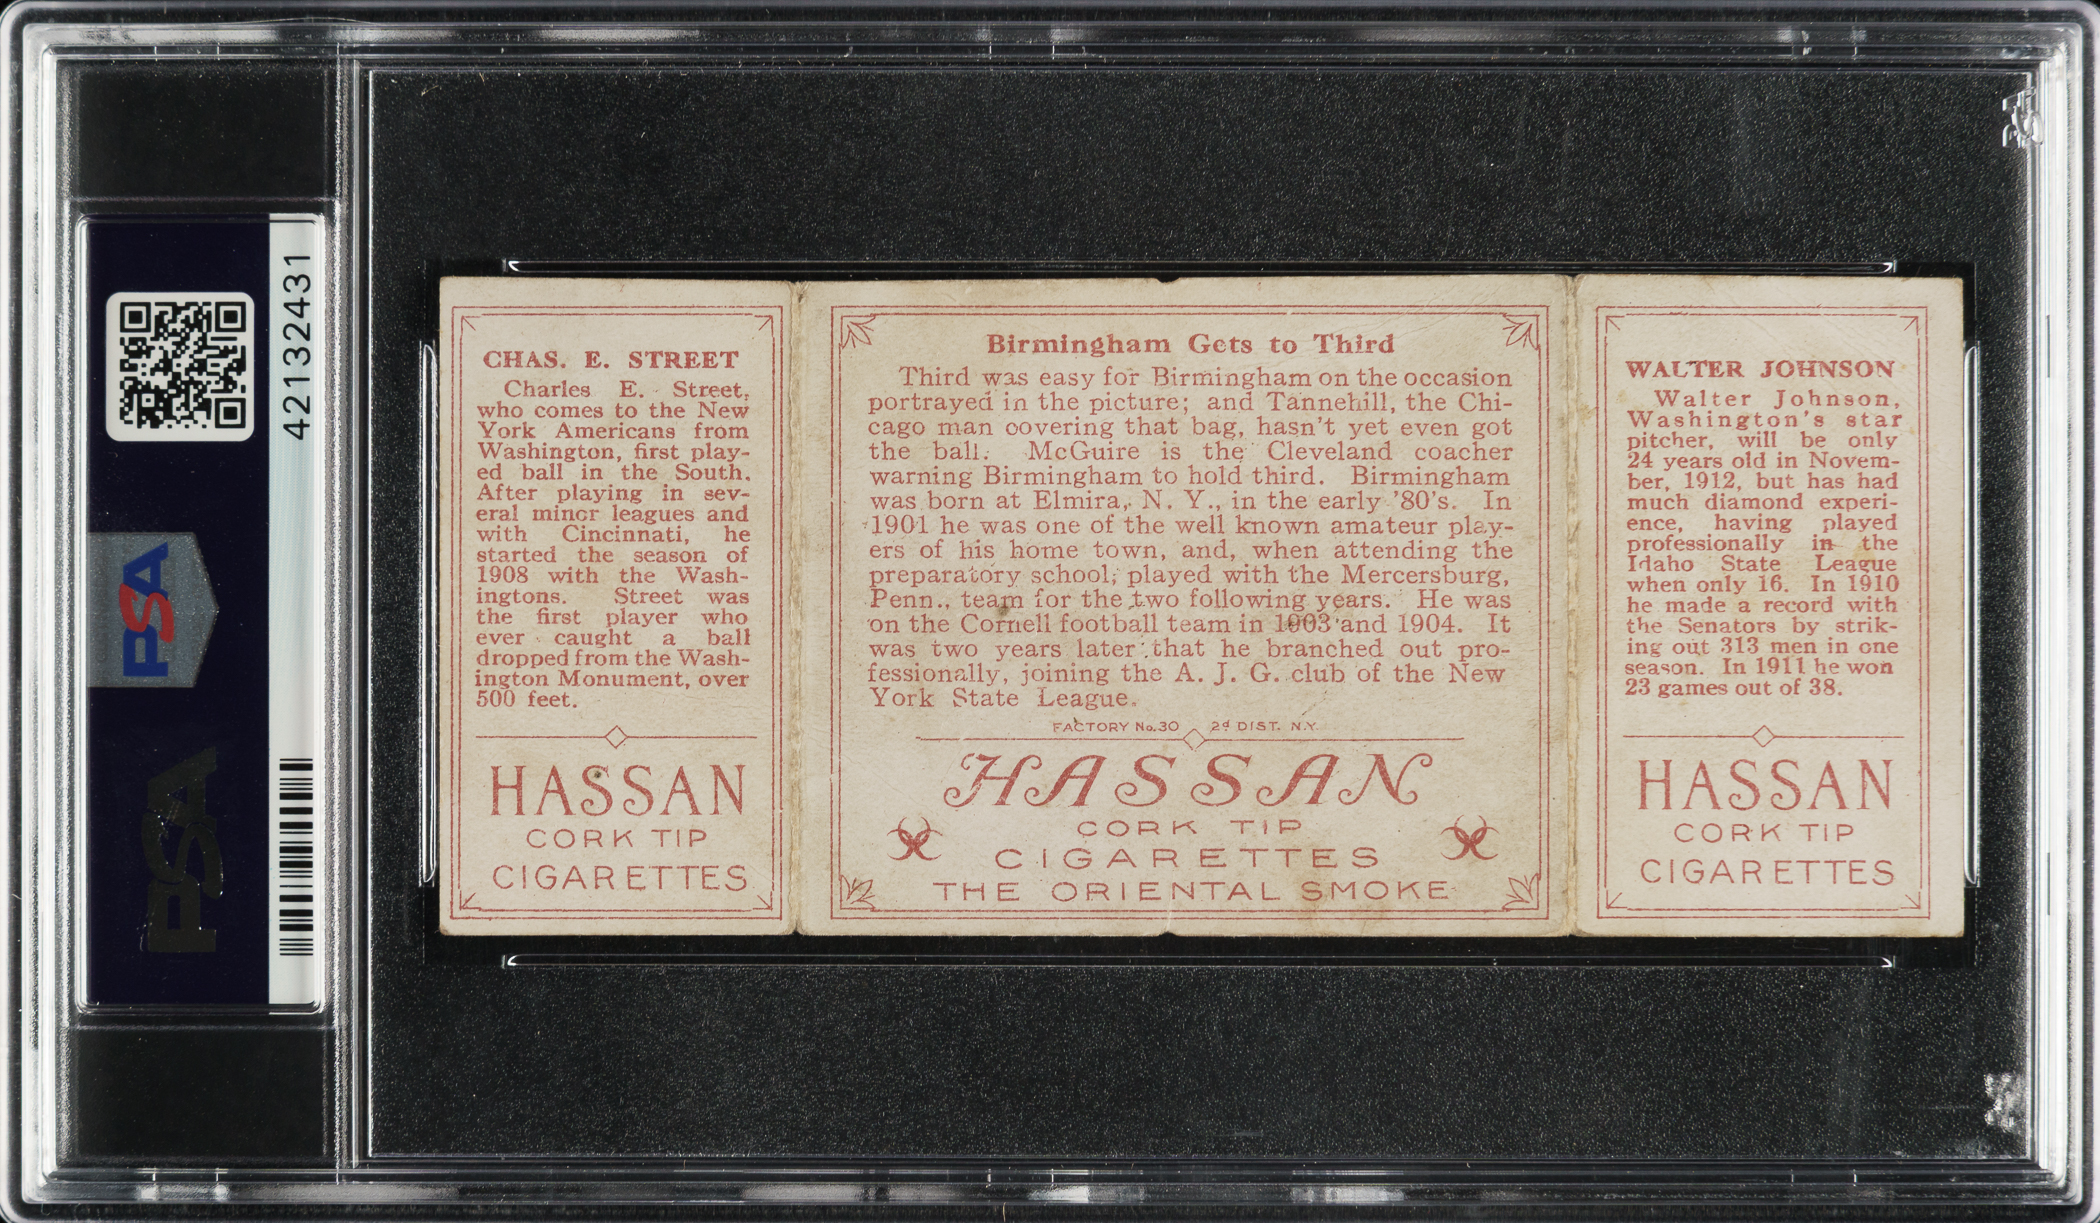 42132431
PSA
PSA
CHAS. E. STREET
Charles E. Street,
who comes to the New
York Americans from
Washington, first play-
ed ball in the South.
After playing in sev-
eral minor leagues and
with Cincinnati, he
started the season of
1908 with the Wash-
ingtons. Street was
the first player who
ever caught a ball
dropped from the Wash-
ington Monument, over
500 feet.
HASSAN
CORK TIP
CIGARETTES
Birmingham Gets to Third
Third was easy for Birmingham on the occasion
portrayed in the picture; and Tannehill, the Chi-
cago man covering that bag, hasn't yet even got
the ball. McGuire is the Cleveland coacher
warning Birmingham to hold third. Birmingham
was born at Elmira, N. Y., in the early '80's. In
1901 he was one of the well known amateur play-
ers of his home town, and, when attending the
preparatory school, played with the Mercersburg,
Penn., team for the two following years. He was
on the Cornell football team in 1903 and 1904. It
was two years later that he branched out pro-
fessionally, joining the A. J. G. club of the New
York State League.
FACTORY No. 30 2d DIST. N.Y.
HASSAN
CORK TIP
CIGARETTES
THE ORIENTAL SMOKE
WALTER JOHNSON
Walter Johnson,
Washington's star
pitcher, will be only
24 years old in Novem-
ber, 1912, but has had
much diamond experi-
ence, having played
professionally in the
Idaho State League
when only 16. In 1910
he made a record with
the Senators by strik-
ing out 313 men in one
season. In 1911 he won
23 games out of 38.
HASSAN
CORK TIP
CIGARETTES
PSA